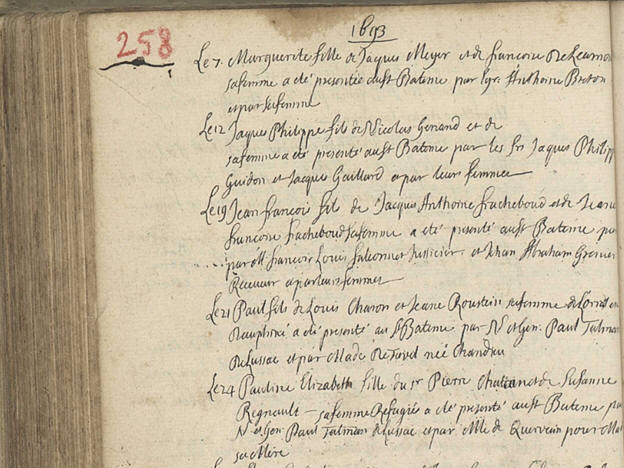 258
1693
Le 7. Marguerite fille de Jaques Meyer et de francoise De
sa femme a été presentée au st Bateme par Sgr. Anthoine Breton
et par sa femme
Le 12 Jaques Philippe fils de Nicolas Genand et de
sa femme a été presenté au st Bateme par les Srs Jaques Philipp
Guidon et Jacques Gaillard et par leurs femmes
Le 19 Jean francois fils de Jacques Anthoine fracheboud et de Jeane
francoise fracheboud sa femme a été presenté au st Bateme pa
par Mr francois Louis falconnet Justicier et Jehan Abraham Grenier
Receveur et par leurs femmes
Le 21 Paul fils de Louis Charon et Jeane Roustein sa femme de en
Dauphiné a été presenté au St Bateme par N. et Gen. Paul Talman
De Lussac et par Made De née Chandieu
Le 24 Pauline Elizabeth fille du sr Pierre et de Susanne
Regnault sa femme Refugiés a été presenté au st Bateme pa
N. et Gen. Paul Talman de Lussac et par Mlle de pour Ma
sa Mère